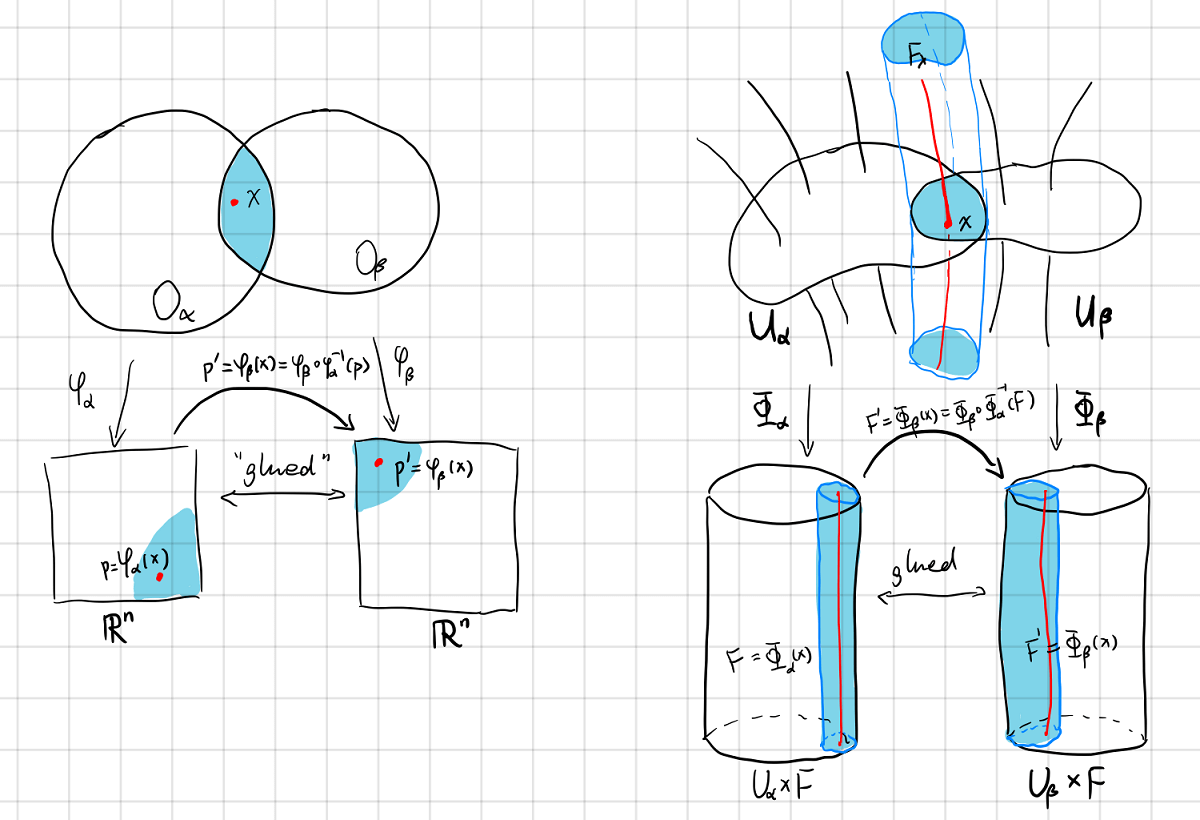 x
O_α
O_β
φ_α
p'=φ_β(x)=φ_β∘φ_α^{-1}(p)
φ_β
"glued"
p'=φ_β(x)
p=φ_α(x)
ℝⁿ
ℝⁿ
F_x
x
U_α
U_β
Φ_α
F'=Φ_β(x)=Φ_β∘Φ_α^{-1}(F)
Φ_β
glued
F=Φ_α(x)
F'=Φ_β(x)
U_α×F
U_β×F